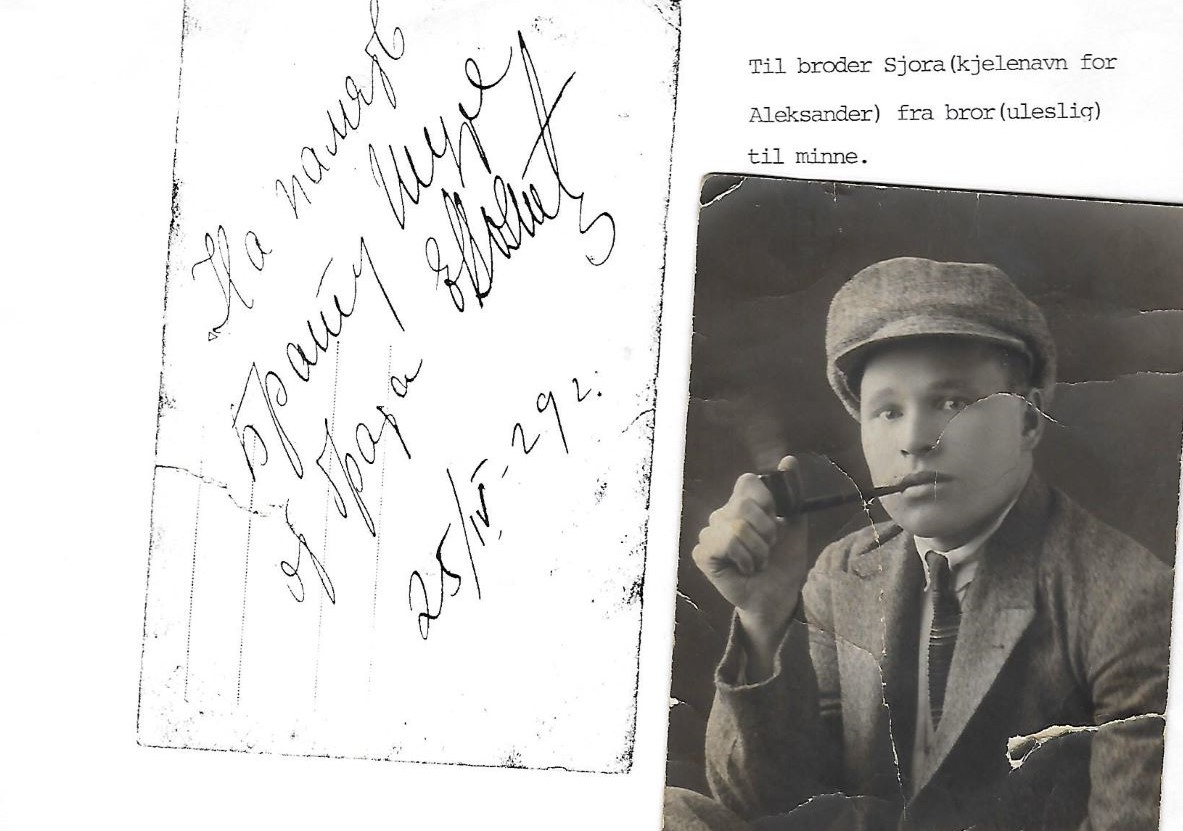 На память
брату Шуре
от брата
25/IV-29 г.
Til broder Sjora(kjelenavn for
Aleksander) fra bror(uleslig)
til minne.